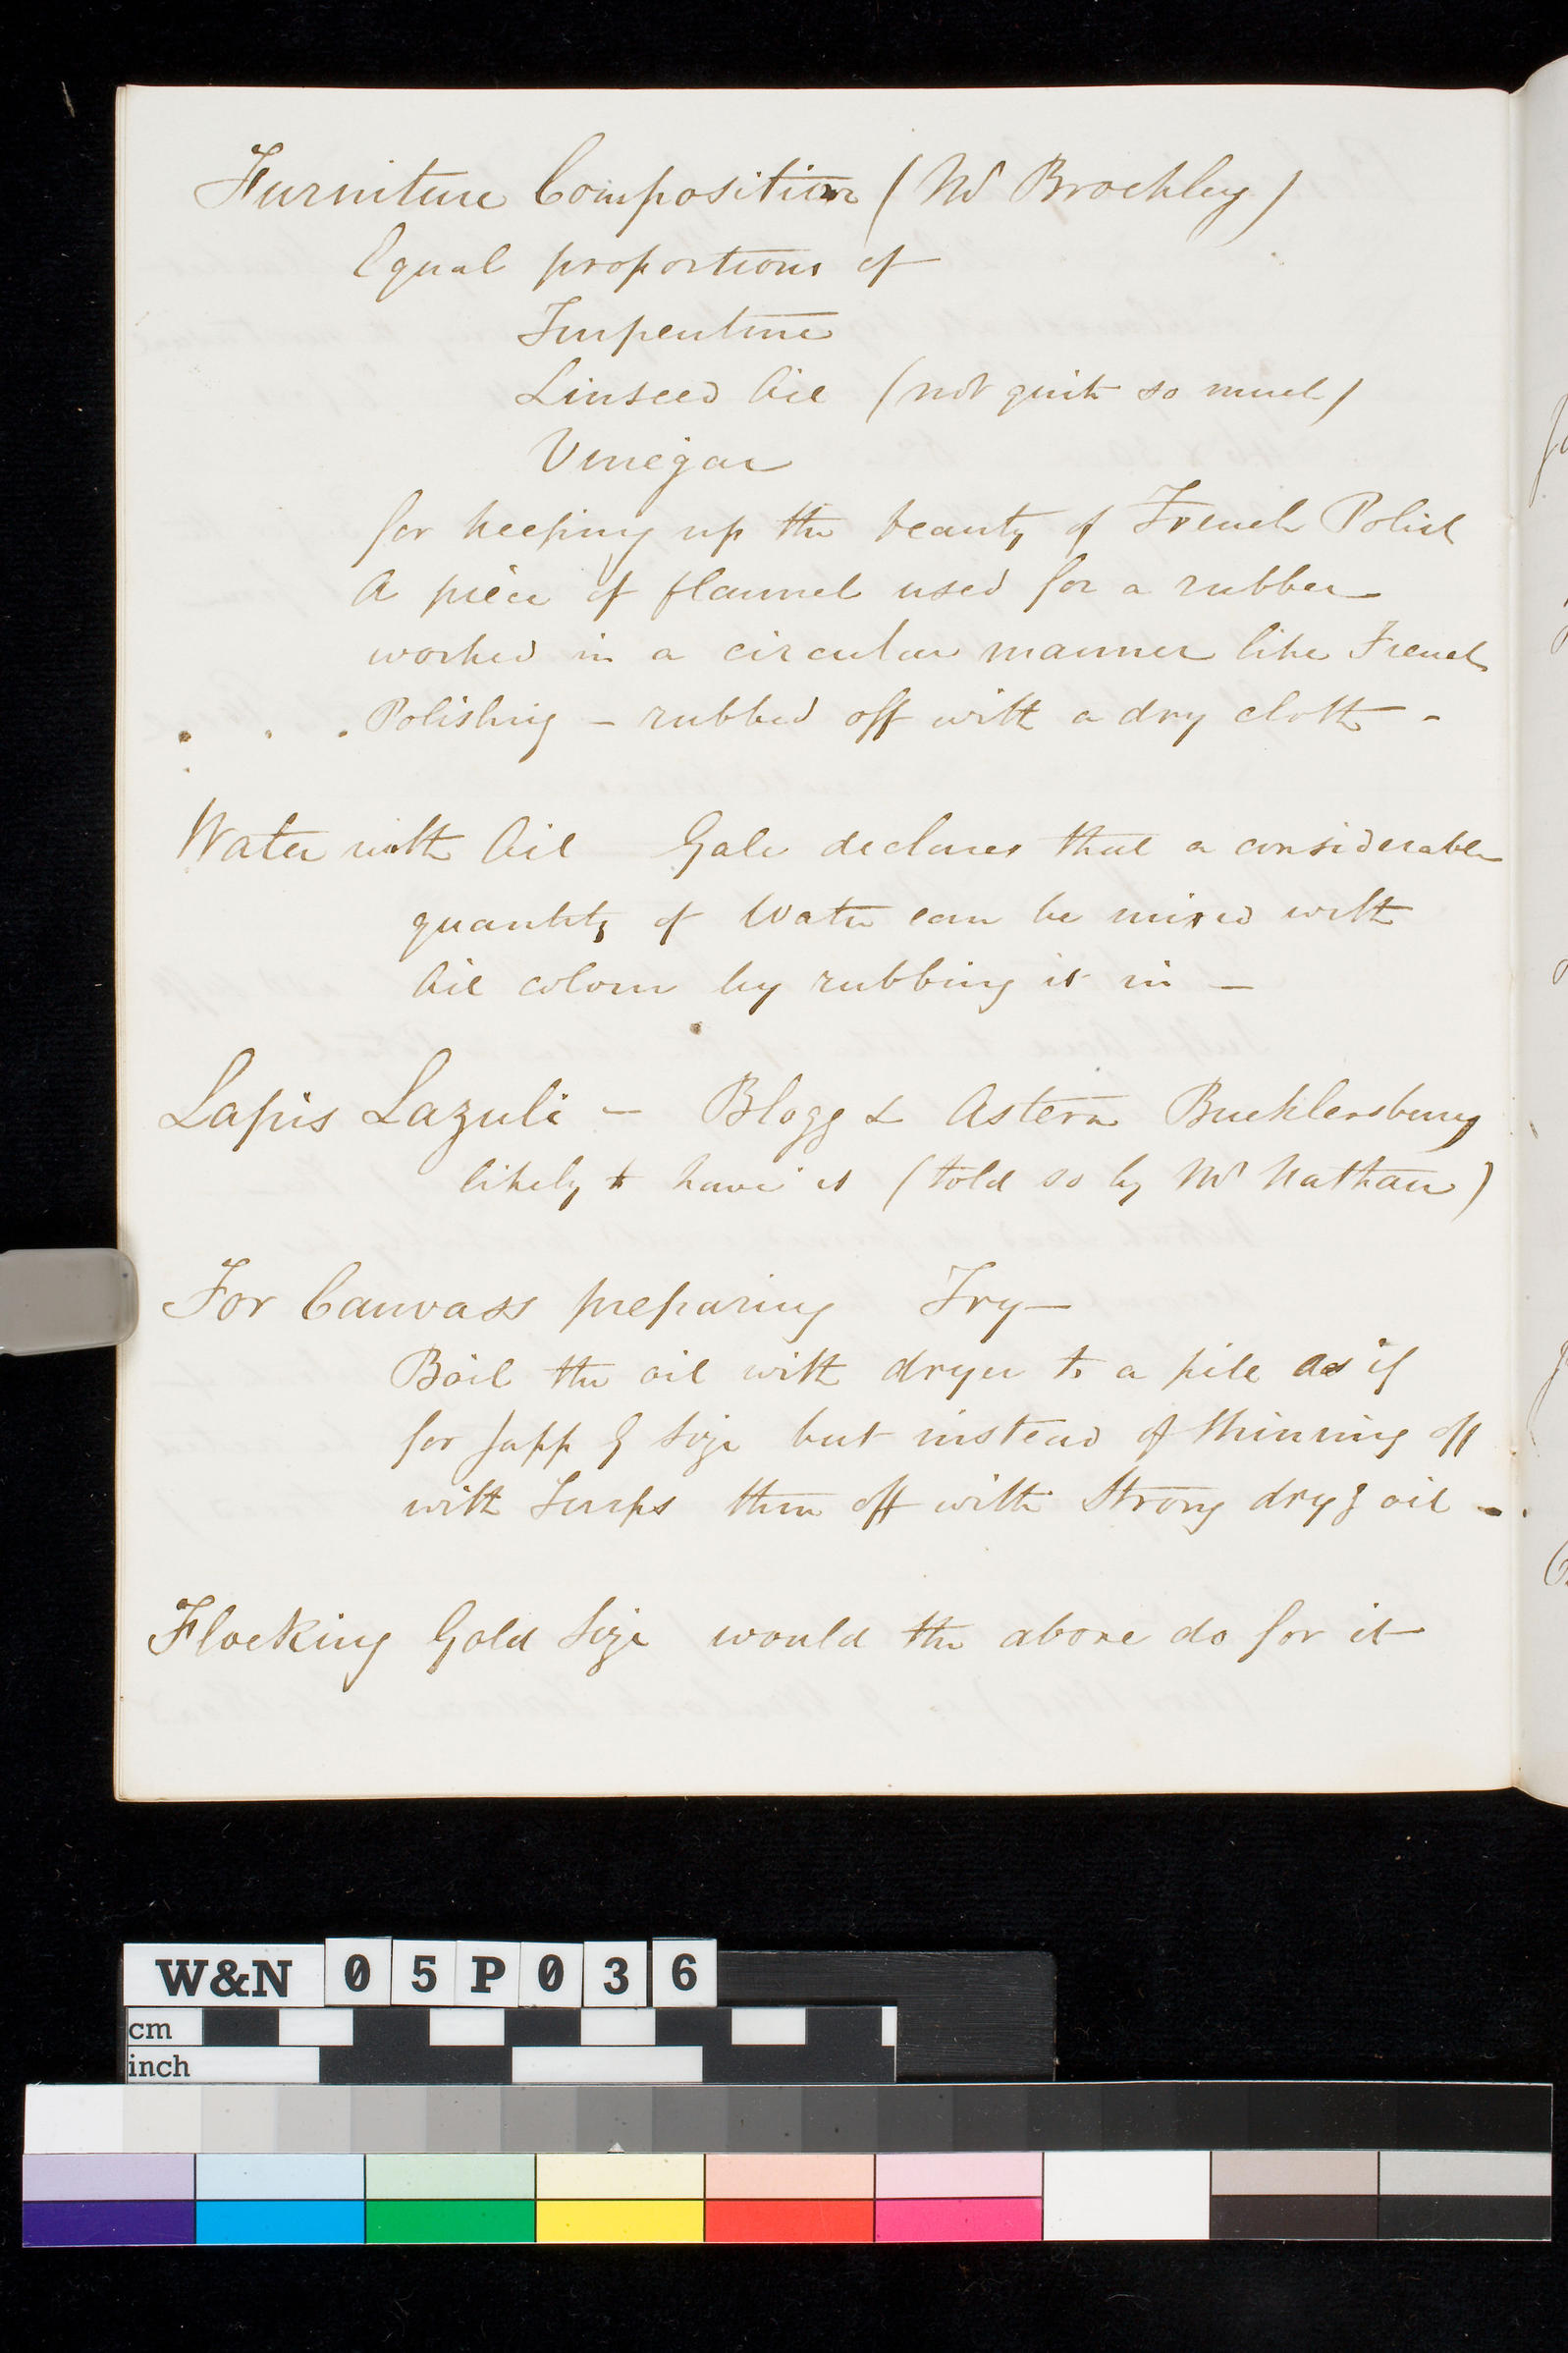 Furniture Composition (Mr Brockley)
Equal proportions of
Turpentine
Linseed Oil (not quite so much)
Vinegar
for keeping up the beauty of French Polish
A piece of flannel used for a rubber
worked in a circular manner like French
Polishing – rubbed off with a dry cloth –
Water with Oil Gale declares that a considerable
quantity of Water can be mixed with
Oil colour by rubbing it in –
Lapis Lazuli – Blogg & Bucklersbury
likely to have it (told so by Mr Nathan)
For Canvass preparing Try –
Boil the oil with dryer to a pile as if
for Japp G Size but instead of thinning off
with Turps thin off with Strong dryg oil –
Flocking Gold Size would the above do for it
W&N 05P036
cm
inch